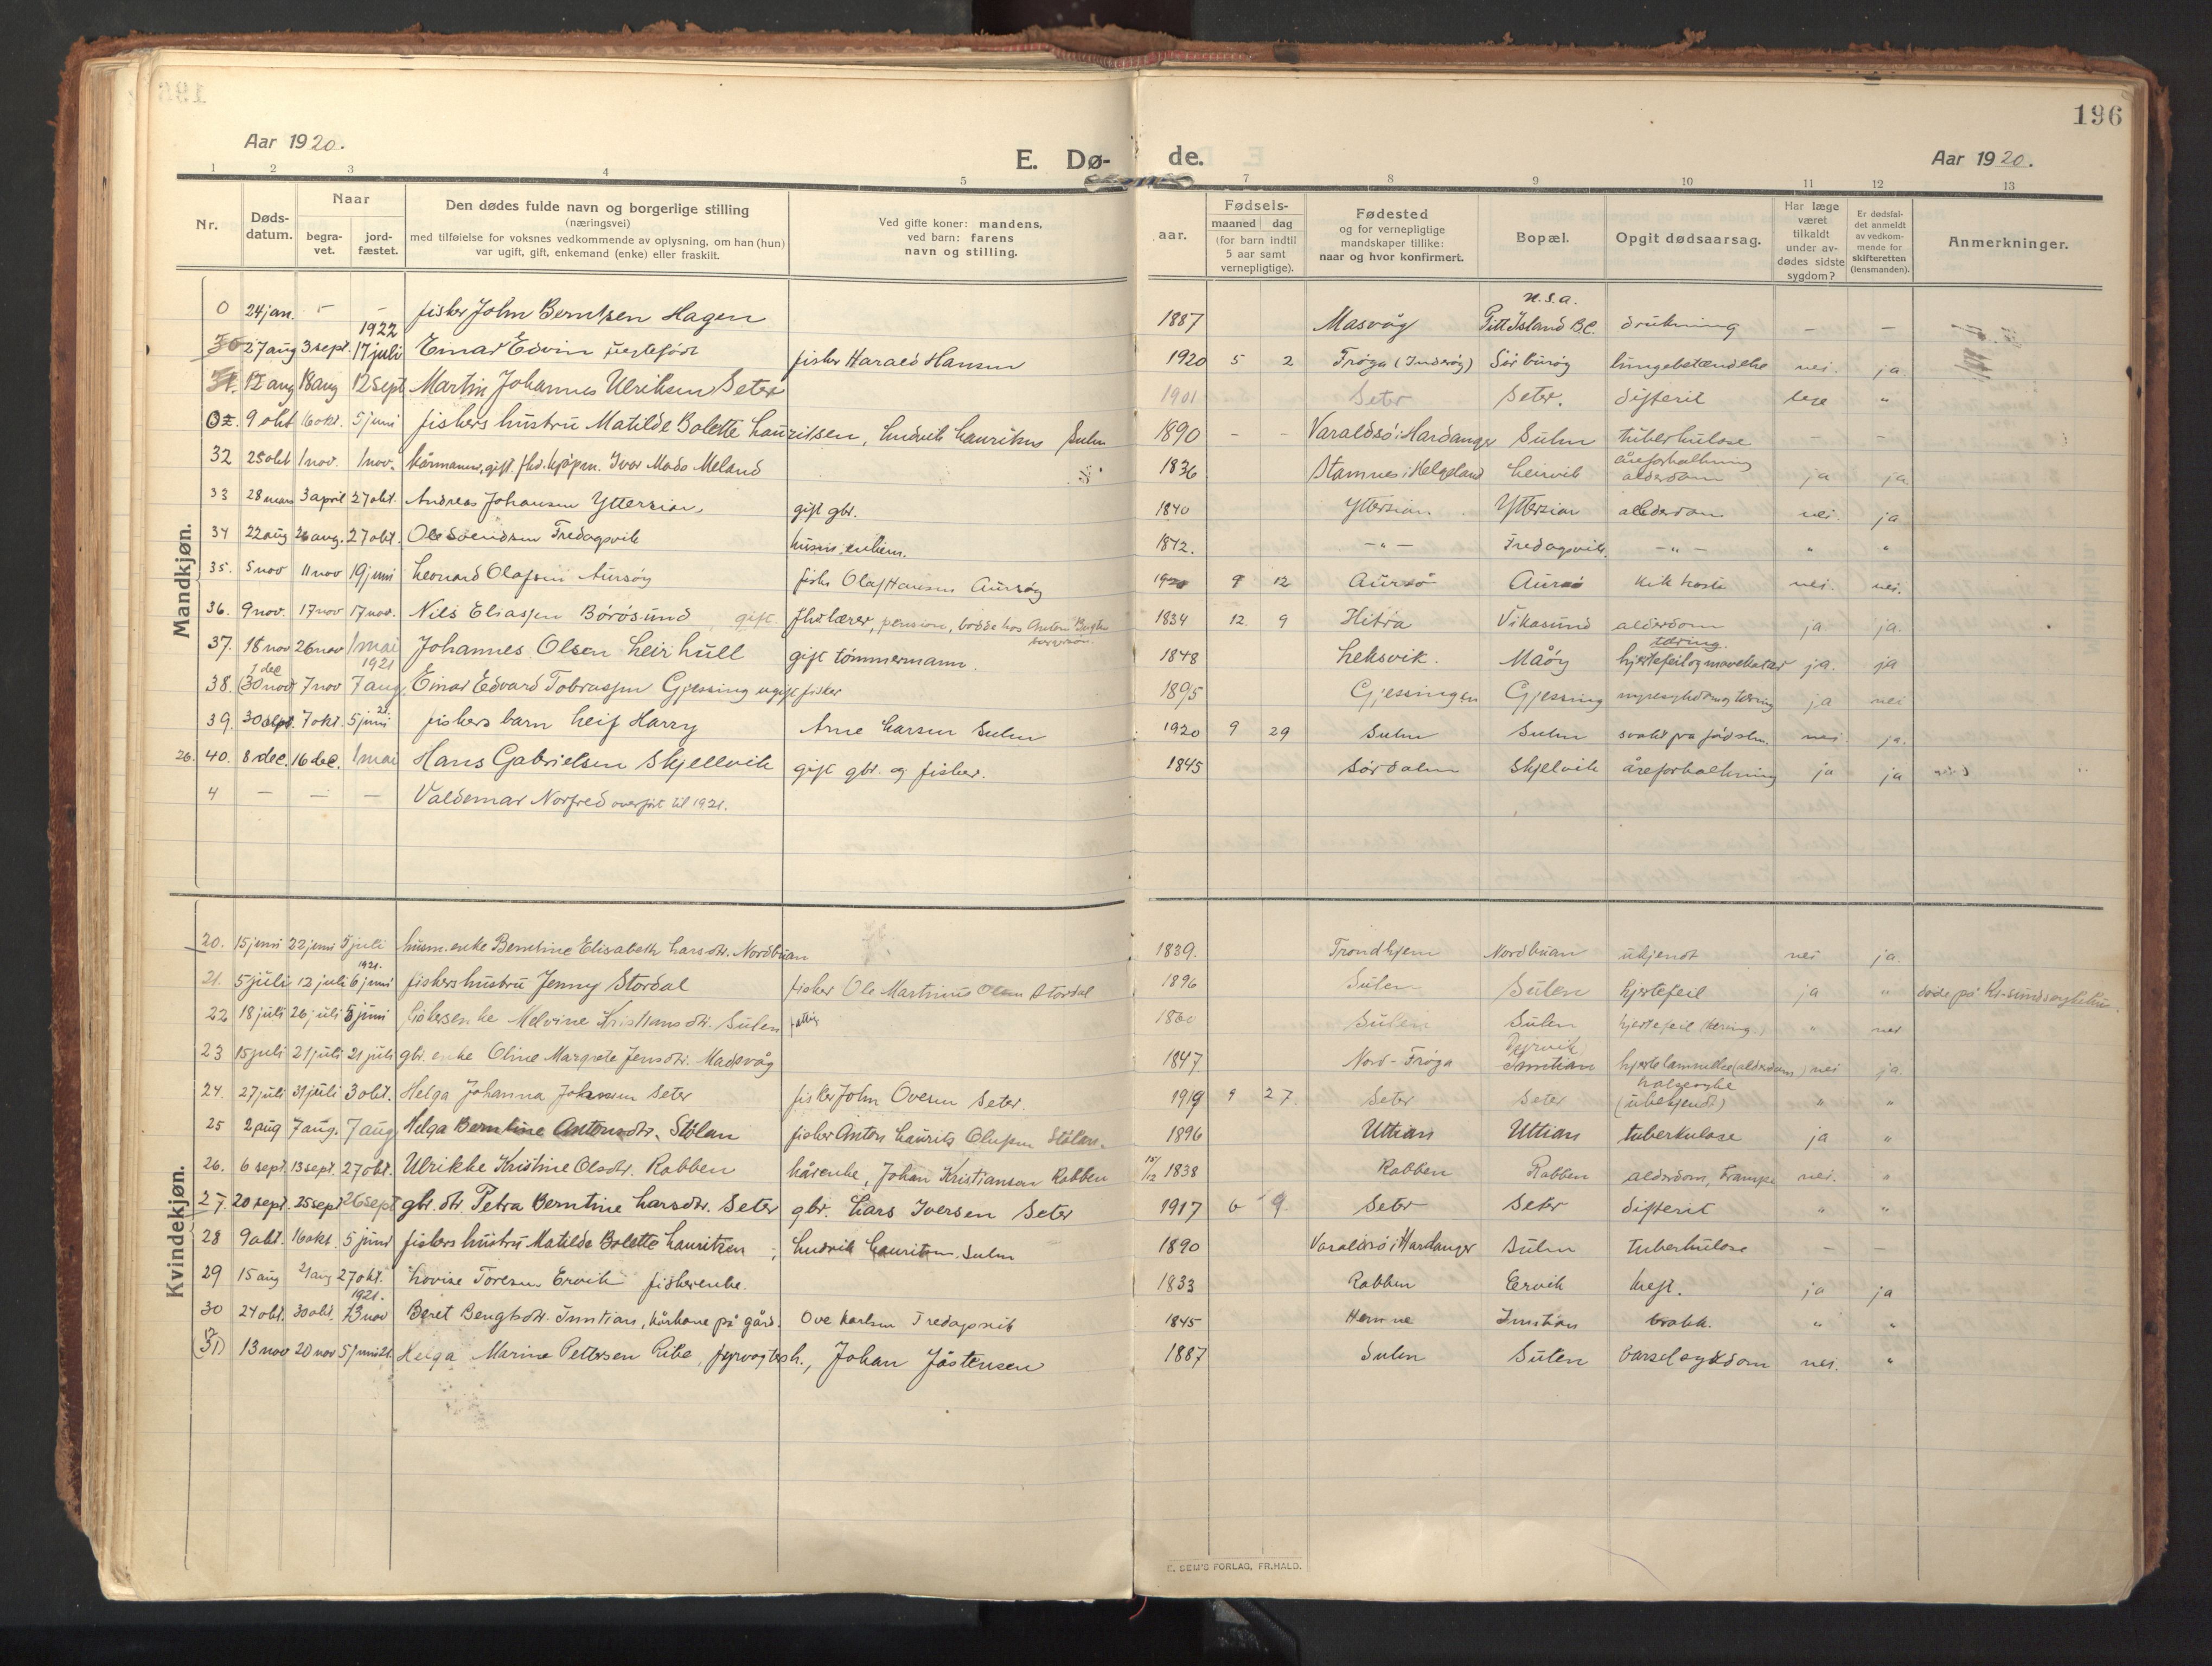 196
Aar 1920.
E. Dø-
de.
Aar 1920.
1 2 3 4 5 7 8 9 10 11 12 13
Nr.
Døds-
datum.
Naar
begra-
vet.
jord-
fæstet.
Den dødes fulde navn og borgerlige stilling
(næringsvei)
med tilføielse for voksnes vedkommende av oplysning, om han (hun)
var ugift, gift, enkemand (enke) eller fraskilt.
Ved gifte koner: mandens,
ved barn: farens
navn og stilling.
aar.
Fødsels-
maaned dag
(for barn indtil
5 aar samt
vernepligtige).
Fødested
og for vernepligtige
mandskaper tillike:
naar og hvor konfirmert.
Bopæl.
Opgit dødsaarsag.
Har læge
været
tilkaldt
under av-
dødes sidste
sygdom?
Er dødsfal-
det anmeldt
av vedkom-
mende for
skifteretten
(lensmanden).
Anmerkninger.
Mandkjøn.
0 24 jan. - - fisker John Berntsen Hagen 1887 Masvåg Pitt Island B.C. drukning - -
27 aug 3 sept. 1922 17 juli Einar Edvin fisker Harald Hansen 1920 5 2 Frøya Sør lungebetændelse nei. ja
12 aug 18 aug 12 sept Martin Johannes Ulriksen Seter 1901 Seter Seter. difterit "
9 okt 16 okt. 5 juni fiskers hustru Matilde Bolette Lauritsen, Ludvik Lauritsen Sulen 1890 - - Varaldsø i Hardanger Sulen tuberkulose - -
32 25 okt 1 nov. 1 nov. kårmann, gift, Ivar Mads Meland 1836 Stamnes i Helgeland Leirvik åreforkalkning alderdom ja ja
33 28 mars 3 april 27 okt. Andreas Johansen Yttersian, gift gbr. 1840 Yttersian Yttersian alderdom nei. ja
34 22 aug 26 aug. 27 okt. Ole Svendsen Fredagsvik husm. enkem. 1842. -"- Fredagsvik. -"- " "
35. 5 nov 11 nov 19 juni Leonard Olafsen Aursøy fisker Olaf Hansen Aursøy 9 12 Aursø Aursø kikhoste nei. nei.
36. 9 nov. 17 nov 17 nov. Nils Eliassen Børøsund gift. fhv. lærer, pension, 1834 12. 9 Hitra Vikasund alderdom ja ja.
37. 18 nov 26 nov 1 mai Johannes Olsen Leirhull gift tømmermann. 1848 Leksvik. Måøy tæring. hjertefeil og mavekatar ja. ja
38. 1 dec (30 nov) 7 nov 1921 7 aug. Einar Edvard Tobiassen Gjessing ugift fisker 1895 Gjessingen Gjessing nyresygdom og tæring ja nei
39. 30 sept. 7 okt. 5 juni 21 fiskers barn Leif Harry Arne Larsen Sulen 1920 9 29 Sulen Sulen svakt fra fødslen. nei. ja.
26. 40. 8 dec. 16 dec. 1 mai Hans Gabrielsen Skjellvik gift gbr. og fisker. 1845 Sørdalen Skjelvik åreforkalkning ja ja
4 - - - Valdemar Norfred overført til 1921.
Kvindekjøn.
20. 15 juni 22 juni 5 juli husm. enke Berntine Elisabeth Larsdtr. Nordbuan 1839. Trondhjem Nordbuan ukjendt nei ja
21. 5 juli 12 juli 1921. 6 juni fiskers hustru Jenny Stordal fisker Ole Martinus Olsen Stordal 1896 Sulen Sulen hjertefeil ja " døde på
22 18 juli 26 juli 5 juni Melvine Kristiansdtr. Sulen fattig 1860 Sulen Sulen hjertefeil (tæring.) " nei
23 15 juli 21 juli 21 juli gbr. enke Oline Margrete Jensdtr. Madsvåg 1847 Nord-Frøya Inntian hjertelammelse (alderdom) nei ja
24. 27 juli 31 juli 3 okt. Helga Johanna Johnsen Seter fisker John Ovesen Seter. 1919 9 27. Seter Seter halssyke (ubekjendt) " "
25 2 aug 7 aug. 7 aug Helga Berntine Antonsdtr. Stølan fisker Anton Laurits Olufsen Stølan. 1896 Uttian Uttian tuberkulose ja "
26. 6 sept. 13 sept. 27 okt. Ulrikke Kristine Olsdtr. Rabben kårenke, Johan Kristiansen Rabben 15/12 1838 Rabben Rabben alderdom, krampe nei. "
27. 20 sept. 25 sept 26 sept gbr. dtr. Petra Berntine Larsdtr. Seter gbr. Lars Iversen Seter 1917 6 9. Seter Seter difterit " "
28 9 okt. 16 okt. 5 juni fiskers hustru Matilde Bolette Lauritzen ; Ludvik Lauritzen. Sulen 1890 Varaldsø i Hardanger Sulen tuberkulose - -
29 15 aug 21 aug 27 okt. Lovise Toresen Ervik fiskerenke. 1833 Rabben Ervik kreft. ja ja
30 24 okt. 30 okt. 1921. 13 nov Beret Bengtsdtr. Inntian, kårkone på gård. Ove Karlsen Fredagsvik 1845 Hemne Inntian brokk. " "
(31) 13 nov 20 nov 5 juni 21. Helga Marine Pettersen Ribe, Johan Jåstensen 1887 Sulen Sulen barselsykdom nei. "
E. SEM'S FORLAG, FR.HALD.